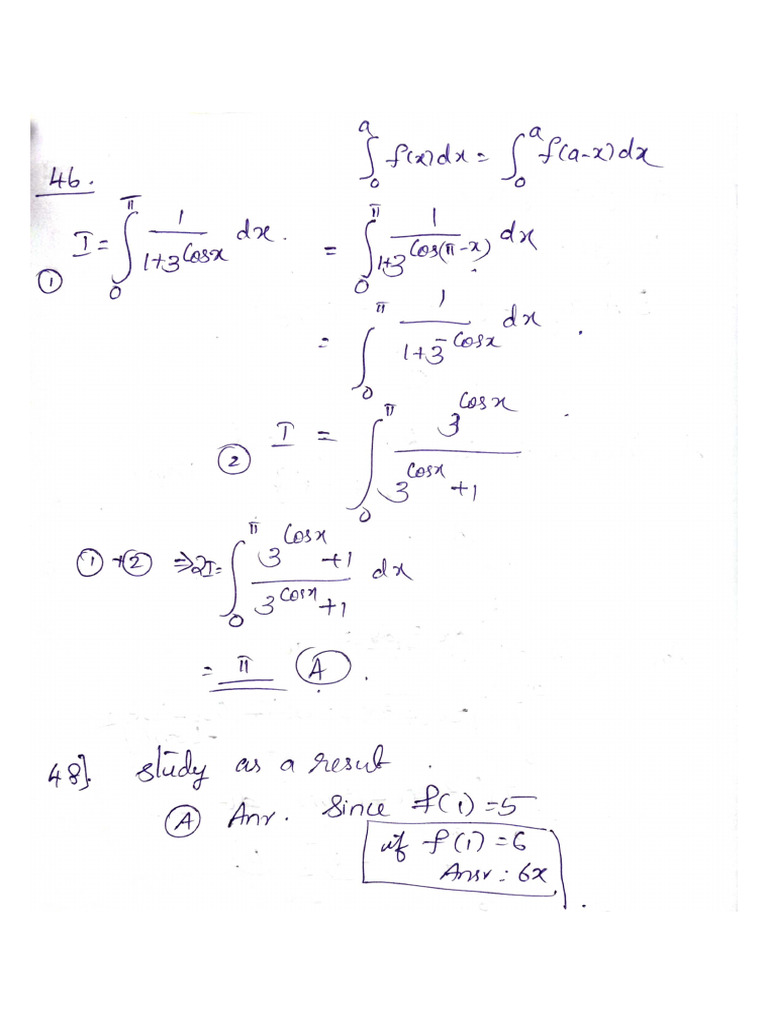 ∫₀ᵃ f(x)dx = ∫₀ᵃ f(a-x)dx
46.
① I = ∫₀^π 1/(1+3^(Cosx)) dx. = ∫₀^π 1/(1+3^(Cos(π-x))) dx
= ∫₀^π 1/(1+3^(-Cosx)) dx.
② I = ∫₀^π 3^(Cosx)/(3^(Cosx)+1).
①+② ⇒ 2I = ∫₀^π (3^(Cosx)+1)/(3^(Cosx)+1) dx
= π Ⓐ.
48]. Study as a result.
Ⓐ Anr. Since f(1)=5
if f(1)=6
Ansr: 6x